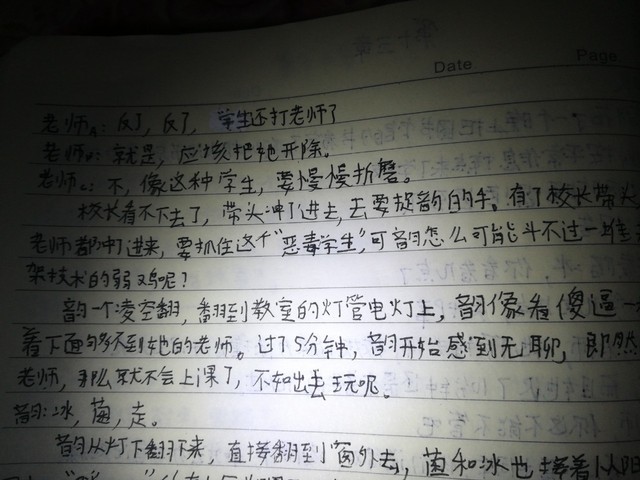 Date Page
老师A:反了,反了,学生还打老师了
老师B:就是,应该把她开除。
老师C:不,像这种学生,要慢慢折磨。
校长看不下去了,带头冲了进去,去要捉韵的手。有了校长带头
老师都冲了进来,要抓住这个“恶毒学生”,可韵怎么可能斗不过一堆
架技术的弱鸡呢?
韵一个凌空翻,翻到教室的灯管电灯上,韵像看傻逼一
看下面够不到她的老师。过了5分钟,韵开始感到无聊,即然
老师,那么就不会上课了,不如出去玩呢。
韵:冰,菌,走。
韵从灯下翻下来,直接翻到窗外去,菌和冰也接着从阳